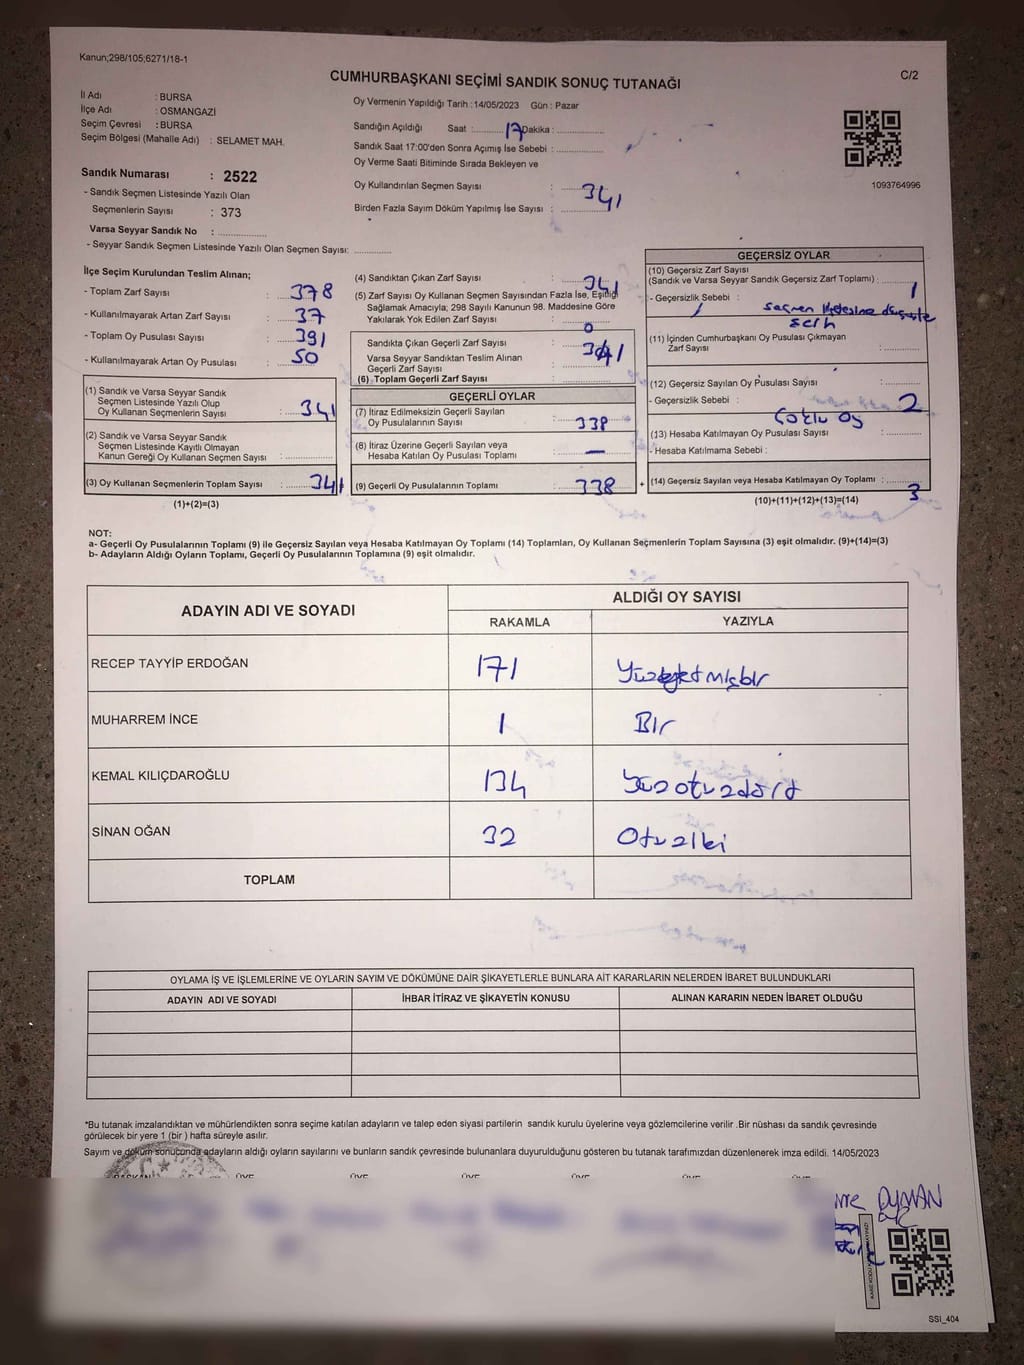 Kanun;298/105;6271/18-1
CUMHURBAŞKANI SEÇİMİ SANDIK SONUÇ TUTANAĞI
C/2
İl Adı : BURSA
İlçe Adı : OSMANGAZI
Seçim Çevresi : BURSA
Seçim Bölgesi (Mahalle Adı) : SELAMET MAH.
Sandık Numarası : 2522
- Sandık Seçmen Listesinde Yazılı Olan
Seçmenlerin Sayısı : 373
Varsa Seyyar Sandık No : ................
- Seyyar Sandık Seçmen Listesinde Yazılı Olan Seçmen Sayısı: ............
Oy Vermenin Yapıldığı Tarih :14/05/2023 Gün : Pazar
Sandığın Açıldığı Saat :......... 17 Dakika : ................
Sandık Saat 17:00'den Sonra Açımış İse Sebebi : ................
Oy Verme Saati Bitiminde Sırada Bekleyen ve
Oy Kullandırılan Seçmen Sayısı : 341
Birden Fazla Sayım Döküm Yapılmış İse Sayısı : ................
1093764996
İlçe Seçim Kurulundan Teslim Alınan;
- Toplam Zarf Sayısı : 378
- Kullanılmayarak Artan Zarf Sayısı : 37
- Toplam Oy Pusulası Sayısı : 391
- Kullanılmayarak Artan Oy Pusulası : 50
(1) Sandık ve Varsa Seyyar Sandık
Seçmen Listesinde Yazılı Olup
Oy Kullanan Seçmenlerin Sayısı : 341
(2) Sandık ve Varsa Seyyar Sandık
Seçmen Listesinde Kayıtlı Olmayan
Kanun Gereği Oy Kullanan Seçmen Sayısı : ............
(3) Oy Kullanan Seçmenlerin Toplam Sayısı : 341
(1)+(2)=(3)
(4) Sandıktan Çıkan Zarf Sayısı : 341
(5) Zarf Sayısı Oy Kullanan Seçmen Sayısından Fazla İse, Eşitliği
Sağlamak Amacıyla; 298 Sayılı Kanunun 98. Maddesine Göre
Yakılarak Yok Edilen Zarf Sayısı : 0
Sandıkta Çıkan Geçerli Zarf Sayısı : 341
Varsa Seyyar Sandıktan Teslim Alınan
Geçerli Zarf Sayısı : ............
(6) Toplam Geçerli Zarf Sayısı : ............
GEÇERLİ OYLAR
(7) İtiraz Edilmeksizin Geçerli Sayılan
Oy Pusulalarının Sayısı : 338
(8) İtiraz Üzerine Geçerli Sayılan veya
Hesaba Katılan Oy Pusulası Toplamı : —
(9) Geçerli Oy Pusulalarının Toplamı : 338
+
GEÇERSİZ OYLAR
(10) Geçersiz Zarf Sayısı
(Sandık ve Varsa Seyyar Sandık Geçersiz Zarf Toplamı) : 1
- Geçersizlik Sebebi :
(11) İçinden Cumhurbaşkanı Oy Pusulası Çıkmayan
Zarf Sayısı : ............
(12) Geçersiz Sayılan Oy Pusulası Sayısı : 2
- Geçersizlik Sebebi : Çoklu oy
(13) Hesaba Katılmayan Oy Pusulası Sayısı : ............
- Hesaba Katılmama Sebebi :
(14) Geçersiz Sayılan veya Hesaba Katılmayan Oy Toplamı : 3
(10)+(11)+(12)+(13)=(14)
NOT:
a- Geçerli Oy Pusulalarının Toplamı (9) ile Geçersiz Sayılan veya Hesaba Katılmayan Oy Toplamı (14) Toplamları, Oy Kullanan Seçmenlerin Toplam Sayısına (3) eşit olmalıdır. (9)+(14)=(3)
b- Adayların Aldığı Oyların Toplamı, Geçerli Oy Pusulalarının Toplamına (9) eşit olmalıdır.
ADAYIN ADI VE SOYADI ALDIĞI OY SAYISI
RAKAMLA YAZIYLA
RECEP TAYYİP ERDOĞAN 171 Yüzyetmişbir
MUHARREM İNCE 1 Bir
KEMAL KILIÇDAROĞLU 134 Yüzotuzdört
SİNAN OĞAN 32 Otuziki
TOPLAM
OYLAMA İŞ VE İŞLEMLERİNE VE OYLARIN SAYIM VE DÖKÜMÜNE DAİR ŞİKAYETLERLE BUNLARA AİT KARARLARIN NELERDEN İBARET BULUNDUKLARI
ADAYIN ADI VE SOYADI İHBAR İTİRAZ VE ŞİKAYETİN KONUSU ALINAN KARARIN NEDEN İBARET OLDUĞU
*Bu tutanak imzalandıktan ve mühürlendikten sonra seçime katılan adayların ve talep eden siyasi partilerin sandık kurulu üyelerine veya gözlemcilerine verilir .Bir nüshası da sandık çevresinde
görülecek bir yere 1 (bir ) hafta süreyle asılır.
Sayım ve döküm sonucunda adayların aldığı oyların sayılarını ve bunların sandık çevresinde bulunanlara duyurulduğunu gösteren bu tutanak tarafımızdan düzenlenerek imza edildi. 14/05/2023
BAŞKAN ÜYE ÜYE ÜYE ÜYE ÜYE ÜYE
OYMAN
SSI_404